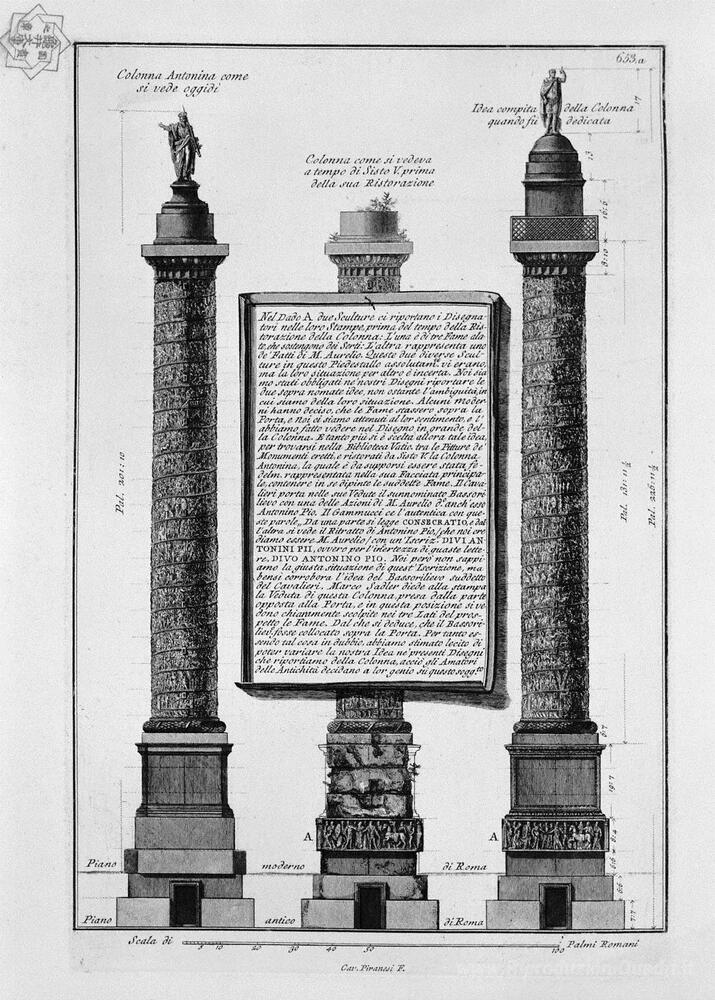 653.a
Colonna Antonina come
si vede oggidì
Colonna come si vedeva
a tempo di Sisto V. prima
della sua Ristorazione
Idea compita della Colonna
quando fù dedicata
Nel Dado A due Sculture ci riportano i Disegna
tori nelle loro Stampe, prima del tempo della Ris
torazione della Colonna: L'una è di tre Fame ala
te, che sostengono dei Serti: L'altra rappresenta uno
de' Fatti di M. Aurelio. Queste due diverse Scul
ture in questo Piedestallo assolutam. vi erano,
ma la loro situazione per altro è incerta. Noi sia
mo stati obbligati ne' nostri Disegni riportare le
due sopra nomate idee, non ostante l'ambiguità, in
cui siamo della loro situazione. Alcuni moder
ni hanno deciso, che le Fame stassero sopra la
Porta, e noi ci siamo attenuti al lor sentimento, e l'
abbiamo fatto vedere nel Disegno in grande del-
la Colonna. E tanto più si è scelta allora tale idea,
per trovarsi nella Biblioteca Vatic. tra le Pitture de'
Monumenti eretti, e ristorati da Sisto V. la Colonna
Antonina, la quale è da supporsi essere stata fe-
delm. rappresentata nella sua Facciata principa-
le, contenere in se dipinte le suddette Fame. Il Cava
lieri porta nelle sue Vedute il sunnominato Bassori
lievo con una delle Azioni di M. Aurelio d. anch esso
Antonino Pio. Il Gammucci ce l'autentica con que
ste parole,, Da una parte si legge CONSECRATIO, e dal
l'altra si vede il Ritratto di Antonino Pio, (che noi cre
diamo essere M. Aurelio) con un' Iscriz. DIVI AN
TONINI PII, ovvero per l'intertezza di quaste lette
re, DIVO ANTONINO PIO. Noi però non sappi
amo la giusta situazione di quest' Iscrizione, ma
bensì corrobora l'idea del Bassorilivo suddetto
del Cavalieri. Marco Sadler diede alla stampa
la Veduta di questa Colonna, presa dalla parte
opposta alla Porta, e in questa posizione si ve-
dono chiaramente scolpite nei tre Lati del pros-
petto le Fame. Dal che si deduce, che il Bassori-
lievo fosse collocato sopra la Porta. Per tanto es-
sendo tal cosa in dubbio, abbiamo stimato lecito di
poter variare la nostra Idea ne' presenti Disegni
che riportiamo della Colonna, acciò gli Amatori
delle Antichità decidano a lor genio su questo sogg.to
Pal. 201: 10
17
13
16: 6
8: 10
Pal. 131: 11 ½
Pal. 226: 11 ½
6: 7
19: 7
A
A
Piano moderno di Roma
Piano antico di Roma
Scala di 5 10 20 30 40 50 100 Palmi Romani
Cav. Piranesi F.